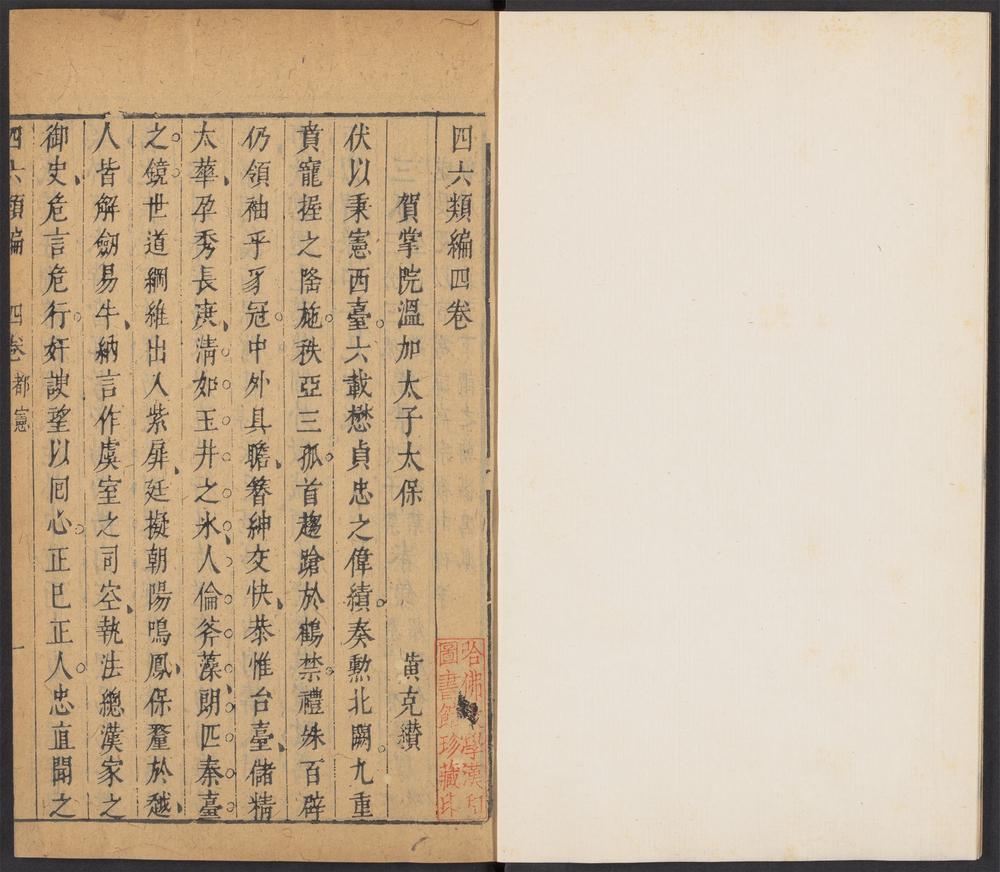 四六類編四卷
賀掌院溫加太子太保 黃克纘
伏以秉憲西臺六載懋貞忠之偉績奏勲北闕九重
賁寵握之隆施秩亞三孤首趨蹌於鶴禁禮殊百辟
仍領袖乎豸冠中外具瞻簪紳交快恭惟台臺儲精
太華孕秀長庚清如玉井之氷人倫斧藻朗匹秦臺
之鏡世道綱維出入紫扉廷擬朝陽鳴鳳保釐於越
人皆解劒易牛納言作虞室之司空執法總漢家之
御史危言危行奸諛望以回心正巳正人忠直聞之
四六類編 四卷 都憲 一
哈佛學漢和
圖書館珍藏印